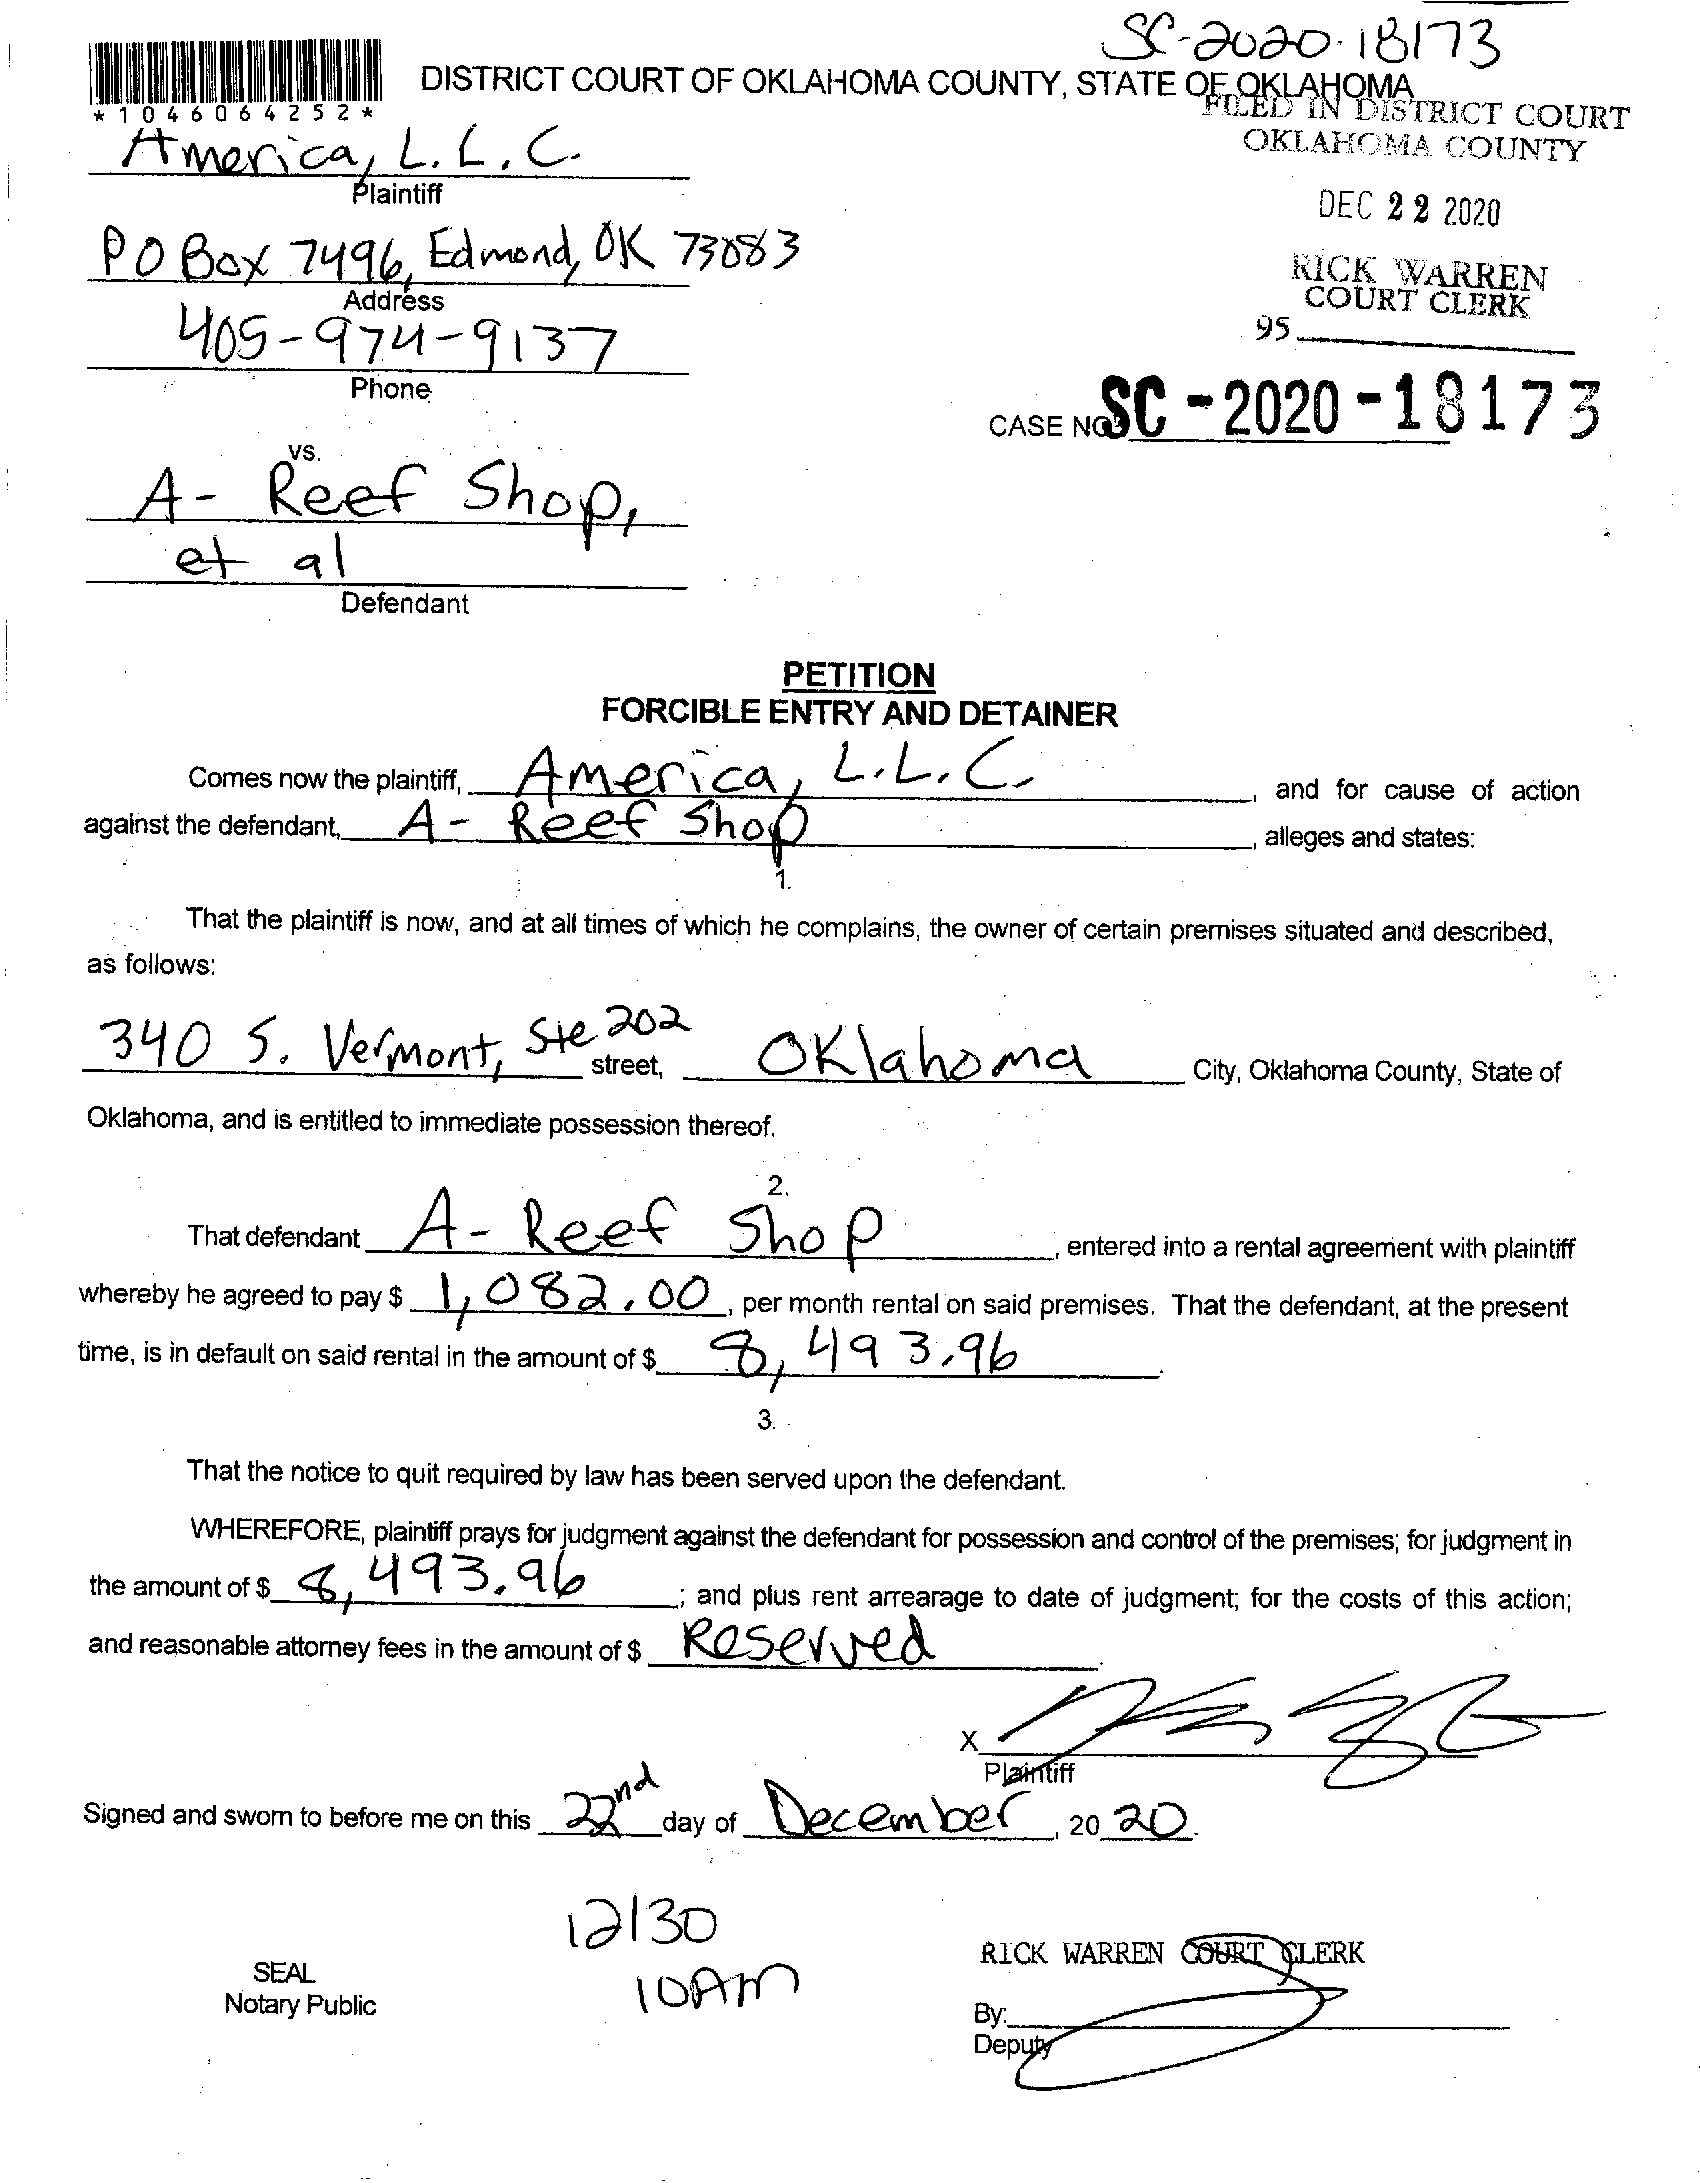 SC-2020-18173
*1046064252*
DISTRICT COURT OF OKLAHOMA COUNTY, STATE OF OKLAHOMA
FILED IN DISTRICT COURT
OKLAHOMA COUNTY
America, L.L.C.
Plaintiff
DEC 22 2020
PO Box 7496, Edmond, OK 73083
Address
RICK WARREN
COURT CLERK
405-974-9137
Phone
95
CASE NO. SC-2020-18173
vs.
A- Reef Shop,
et al
Defendant
PETITION
FORCIBLE ENTRY AND DETAINER
Comes now the plaintiff, America, L.L.C. , and for cause of action
against the defendant, A- Reef Shop , alleges and states:
1.
That the plaintiff is now, and at all times of which he complains, the owner of certain premises situated and described,
as follows:
340 S. Vermont, Ste 202 street, Oklahoma City, Oklahoma County, State of
Oklahoma, and is entitled to immediate possession thereof.
2.
That defendant A- Reef Shop , entered into a rental agreement with plaintiff
whereby he agreed to pay $ 1,082.00 , per month rental on said premises. That the defendant, at the present
time, is in default on said rental in the amount of $ 8,493.96 .
3.
That the notice to quit required by law has been served upon the defendant.
WHEREFORE, plaintiff prays for judgment against the defendant for possession and control of the premises; for judgment in
the amount of $ 8,493.96 ; and plus rent arrearage to date of judgment; for the costs of this action;
and reasonable attorney fees in the amount of $ Reserved .
X
Plaintiff
Signed and sworn to before me on this 22nd day of December , 20 20 .
12/30
10AM
SEAL
Notary Public
RICK WARREN COURT CLERK
By:
Deputy